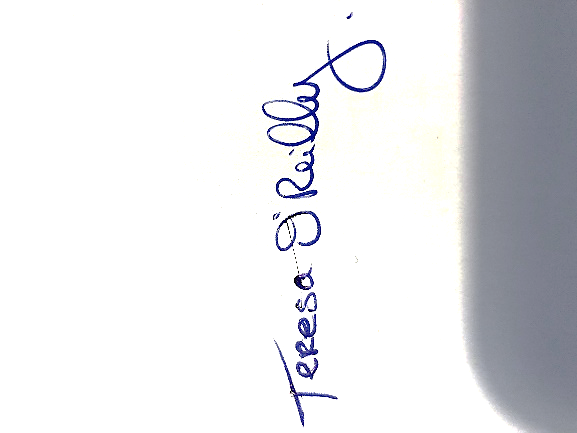 Teresa O'Reilly.